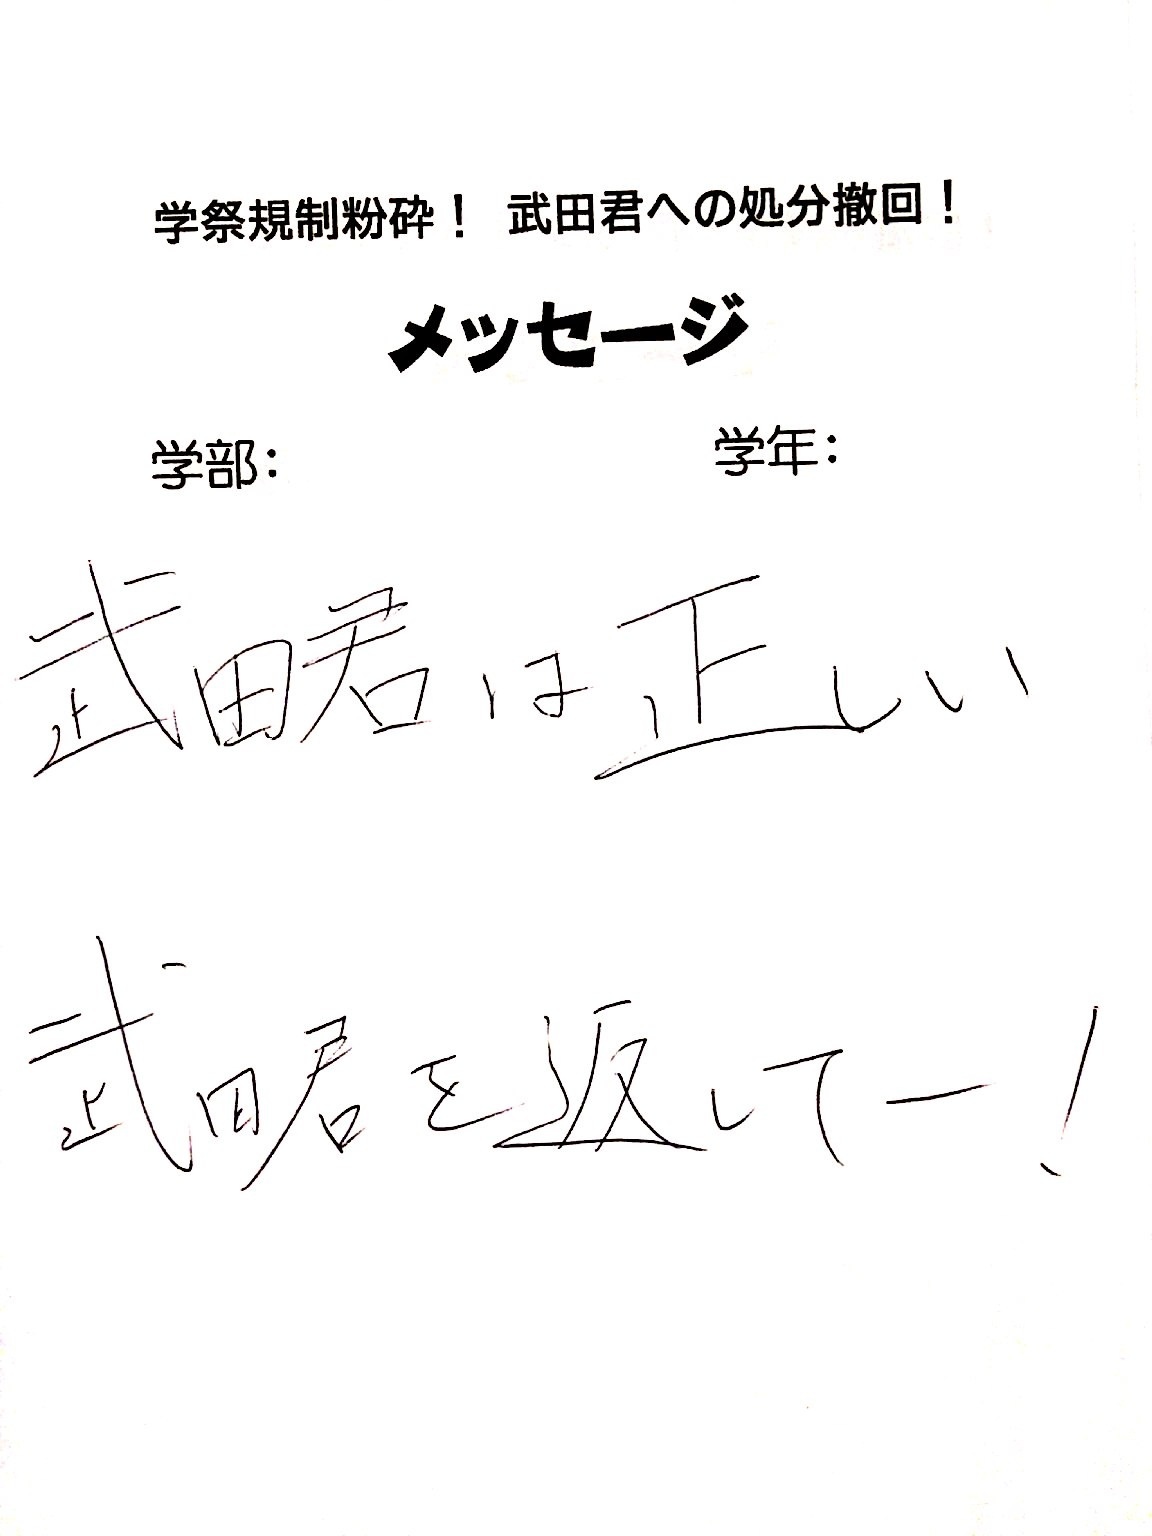 学祭規制粉砕！ 武田君への処分撤回！
メッセージ
学部： 学年：
武田君は正しい
武田君を返してー！